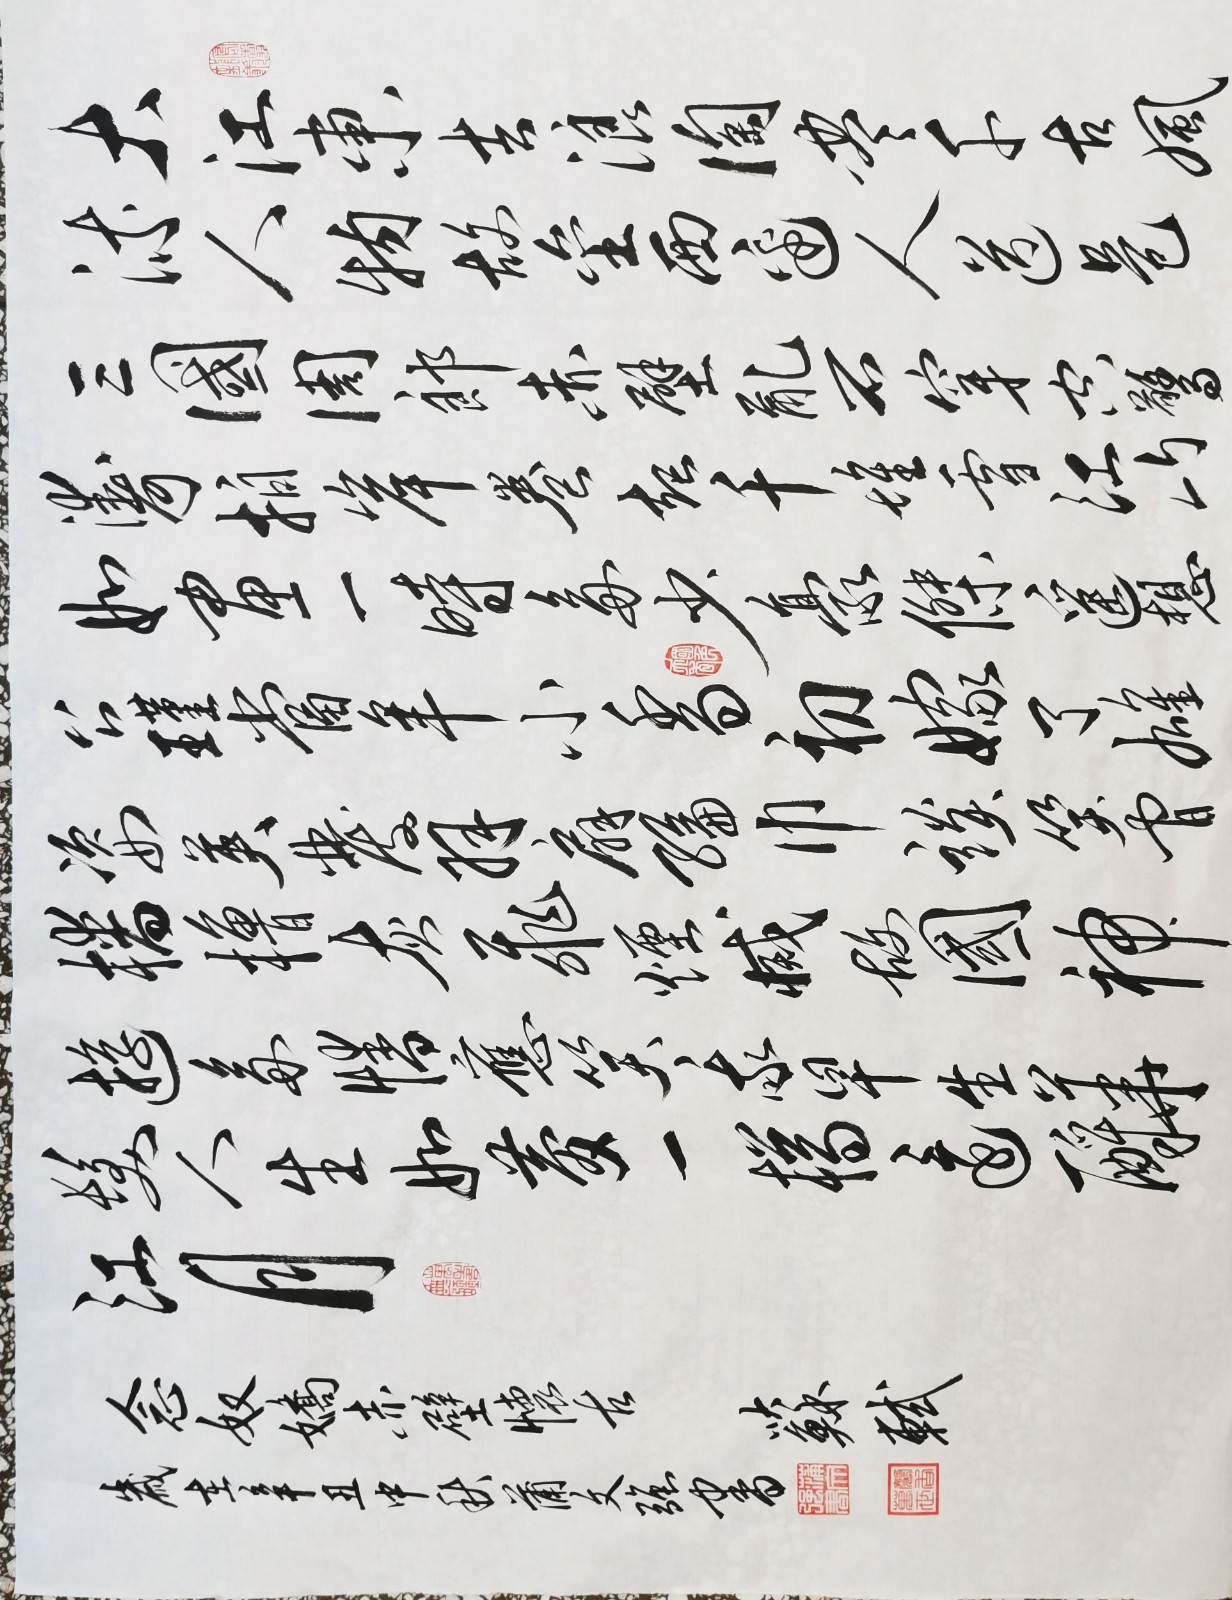 大江東去浪淘盡千古風
流人物故壘西邊人道是
三國周郎赤壁亂石穿空驚
濤拍岸卷起千堆雪江山
如畫一時多少豪傑遙想
公瑾當年小喬初嫁了雄
姿英發羽扇綸巾談笑間
檣櫓灰飛煙滅故國神
遊多情應笑我早生華
髮人生如夢一樽還酹
江月
念奴嬌赤壁懷古 蘇軾
歲在辛丑中秋蒲文強書